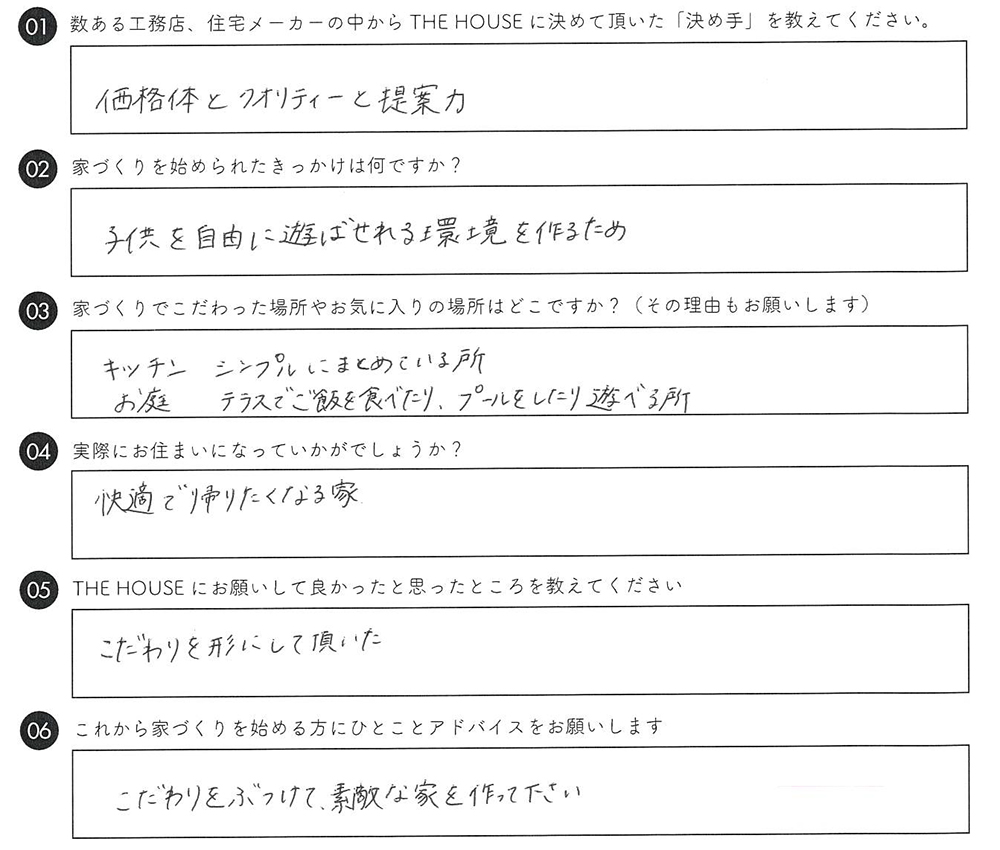 01 数ある工務店、住宅メーカーの中から THE HOUSE に決めて頂いた「決め手」を教えてください。
価格体とクオリティーと提案力
02 家づくりを始められたきっかけは何ですか？
子供を自由に遊ばせれる環境を作るため
03 家づくりでこだわった場所やお気に入りの場所はどこですか？（その理由もお願いします）
キッチン シンプルにまとめている所
お庭 テラスでご飯を食べたり、プールをしたり遊べる所
04 実際にお住まいになっていかがでしょうか？
快適で帰りたくなる家
05 THE HOUSE にお願いして良かったと思ったところを教えてください
こだわりを形にして頂いた
06 これから家づくりを始める方にひとことアドバイスをお願いします
こだわりをぶつけて、素敵な家を作って下さい